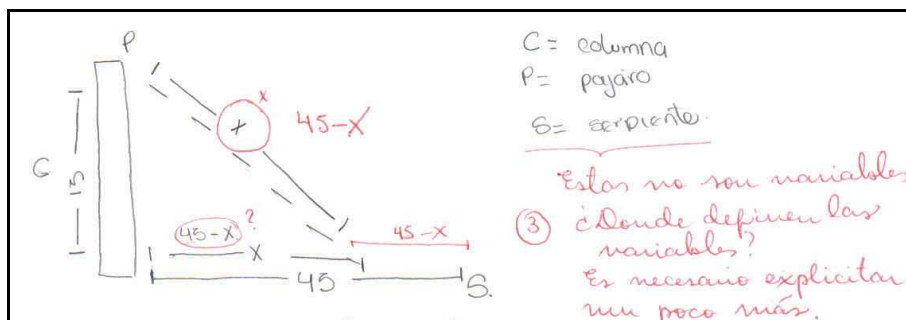 P
C
15
x
x
45-x
45-x
?
x
45-x
45
S.
C= columna
P= pajáro
S= serpiente.
Estas no son variables
③ ¿Donde definen las
variables?
Es necesario explicitar
un poco más.